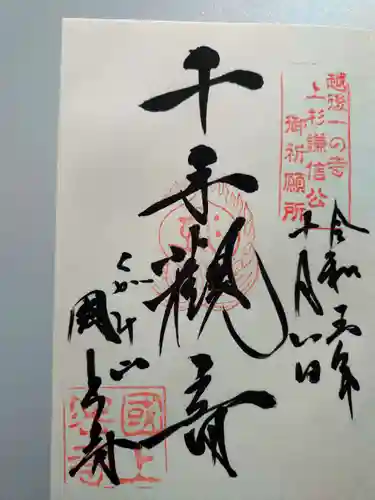 越後一の寺
上杉謙信公
御祈願所
令和五年
十月八日
千手観音
くがみ山
國上寺
國上寺